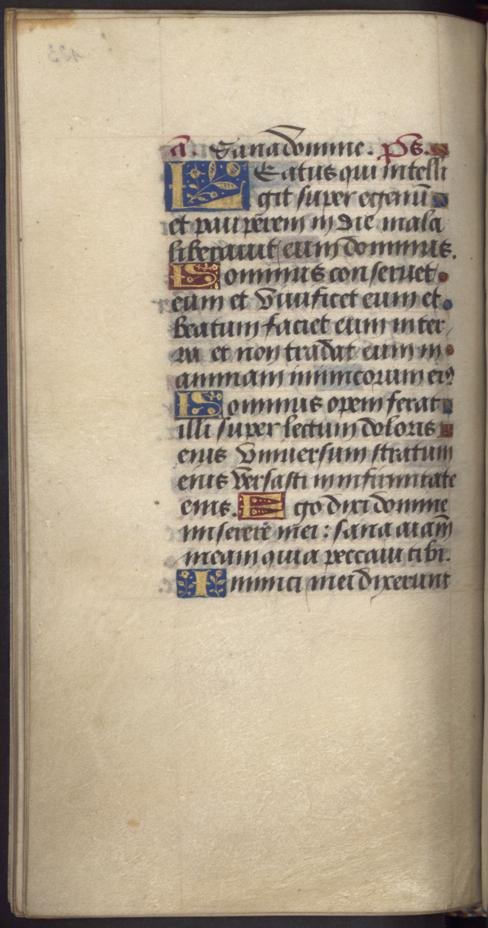 a. Sana domine. ps.
Beatus qui intelli
git super egenū
et pauperem in die mala
liberavit eum dominus.
Dominus conservet
eum et vivificet eum et
beatum faciet eum in ter
ra et non tradat eum in
animam inimicorum eiꝰ
Dominus opem ferat
illi super lectum doloris
eius Vniversum stratum
eius versasti in infirmitate
eius. Ego dixi domine
miserere mei: sana aīam
meam quia peccavi tibi.
Inimici mei dixerunt